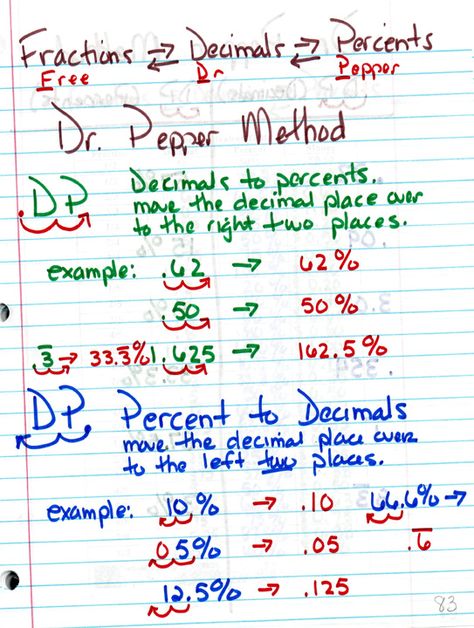 Fractions ⇄ Decimals ⇄ Percents
Free Dr Pepper
Dr. Pepper Method
.DP Decimals to percents.
move the decimal place over
to the right two places.
example: .62 → 62%
.50 → 50%
.3̅ → 33.3̅% 1.625 → 162.5%
DP. Percent to Decimals
move the decimal place over
to the left two places.
example: 10% → .10 66.6% →
05% → .05 .6̅
12.5% → .125
83